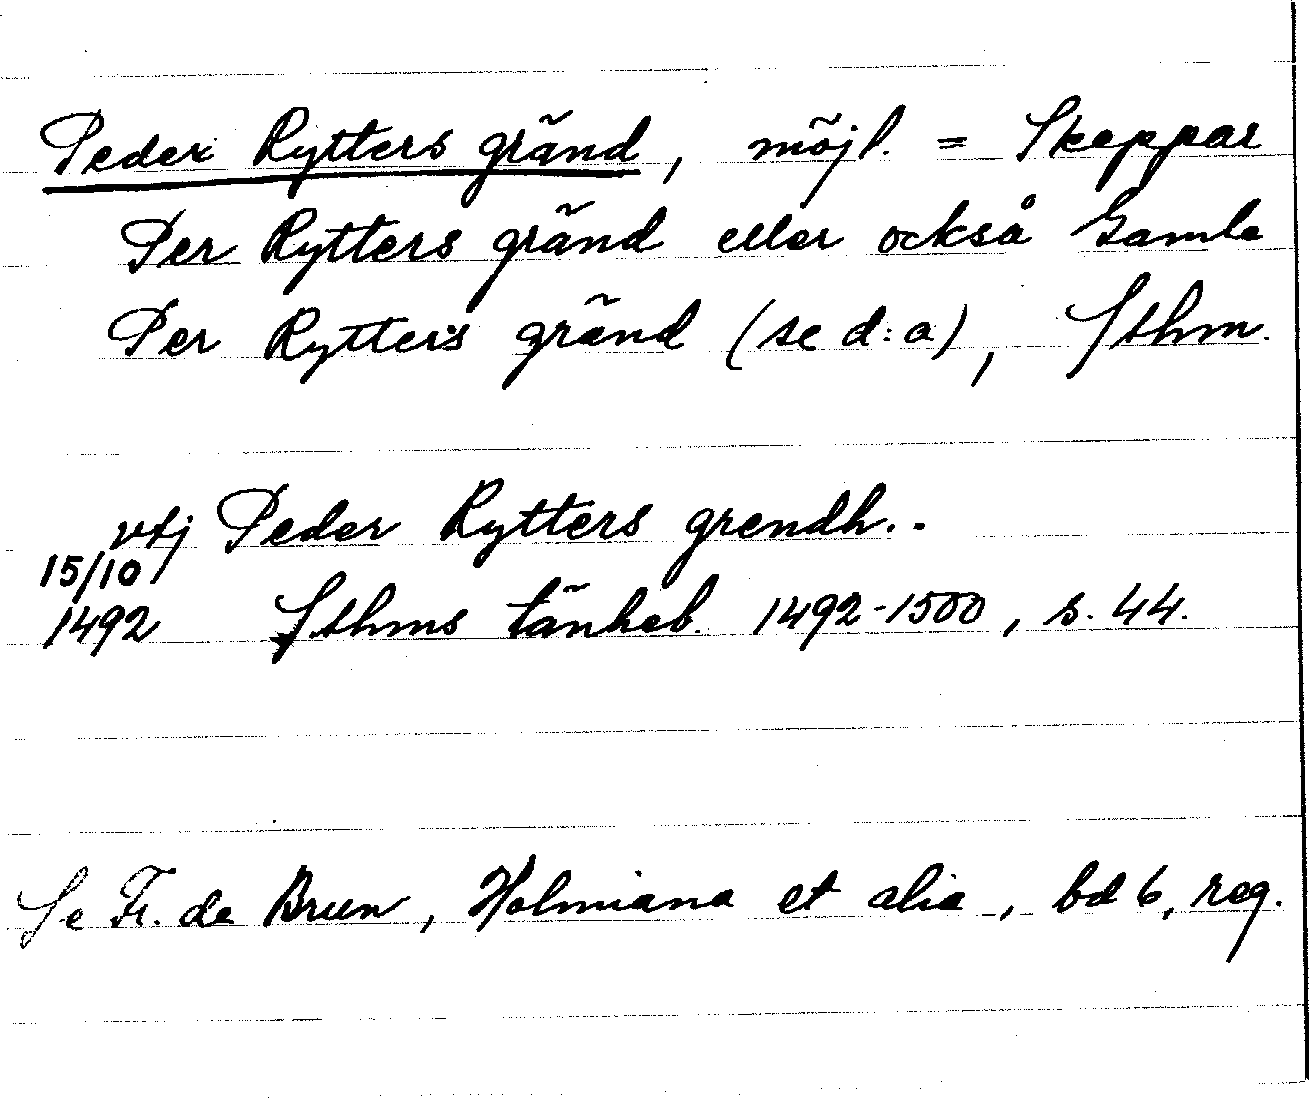 Peder Rytters gränd, möjl. = Skeppar
Per Rytters gränd eller också Gamla
Per Rytters gränd (se d:a), Sthm.
vtj Peder Rytters grendh..
15/10
1492 Sthms tänkeb. 1492-1500, s. 44.
Se Fr. de Brun, Holmiana et alia, bd 6, reg.